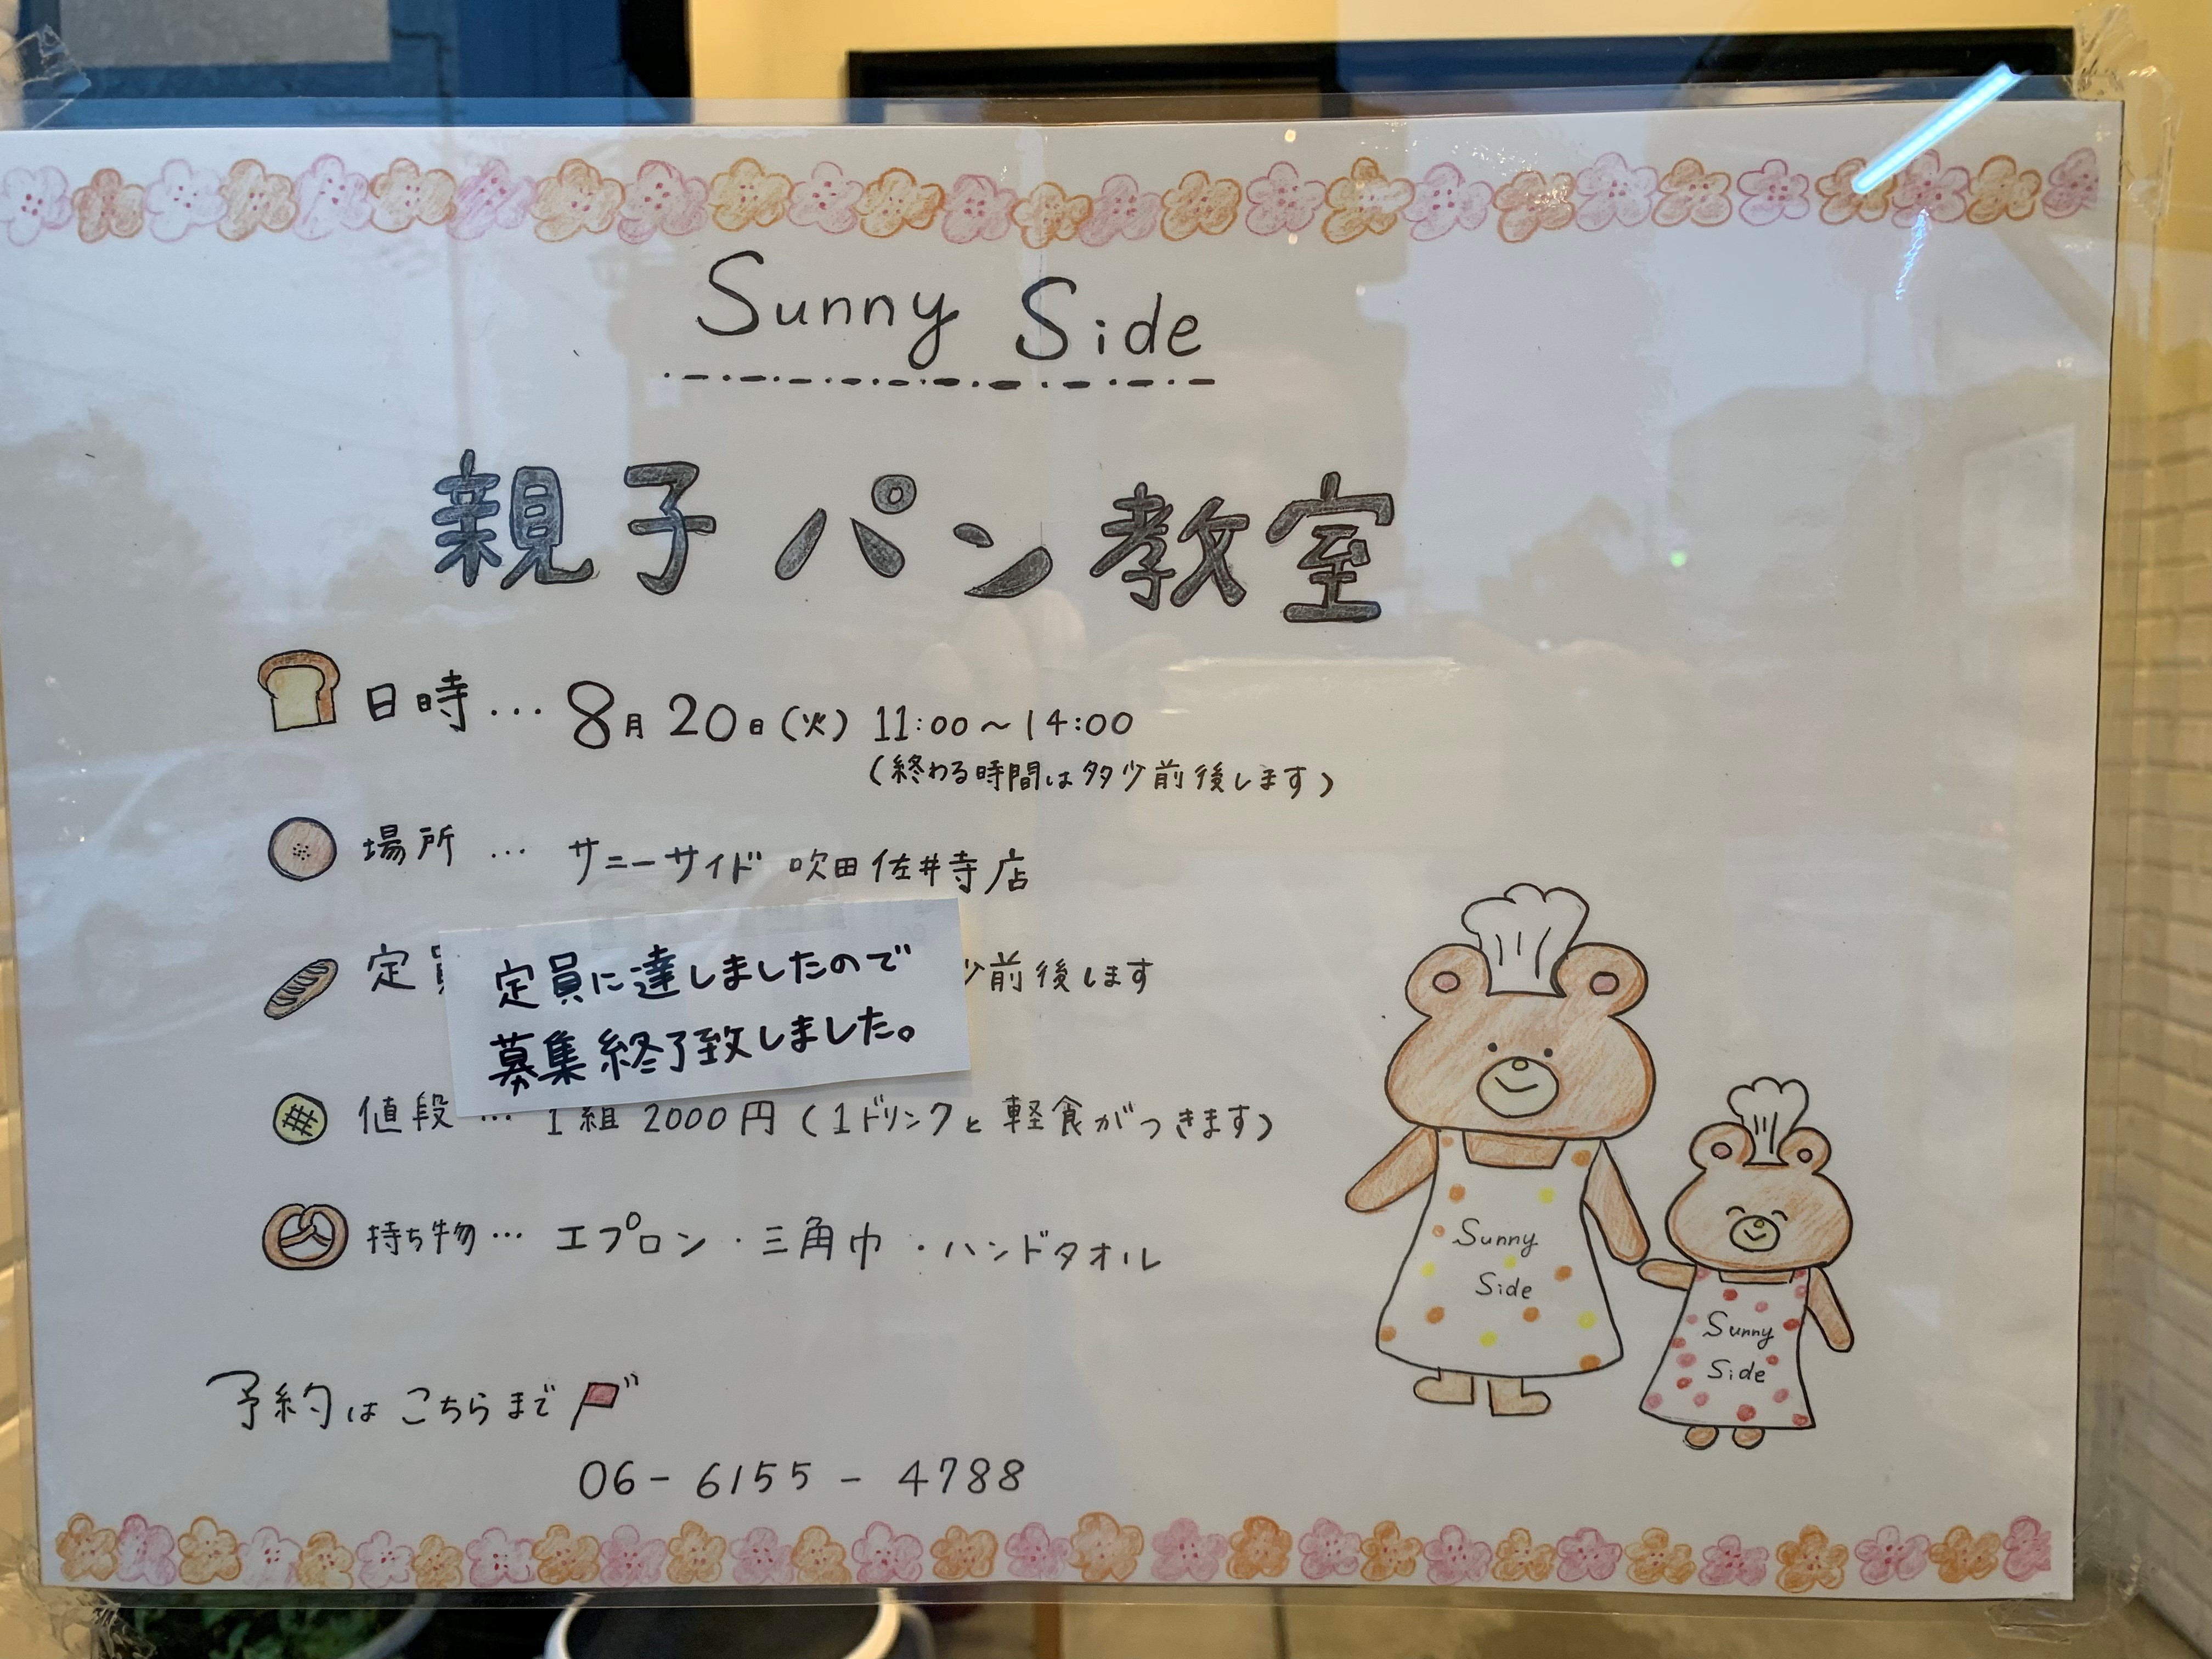 Sunny Side
親子パン教室
日時… 8月20日(火) 11:00～14:00
(終わる時間は多少前後します)
場所… サニーサイド 吹田佐井寺店
定 少前後します
定員に達しましたので
募集終了致しました。
値段… 1組 2000円(1ドリンクと軽食がつきます)
持ち物… エプロン・三角巾・ハンドタオル
Sunny
Side
Sunny
Side
予約はこちらまで
06-6155-4788